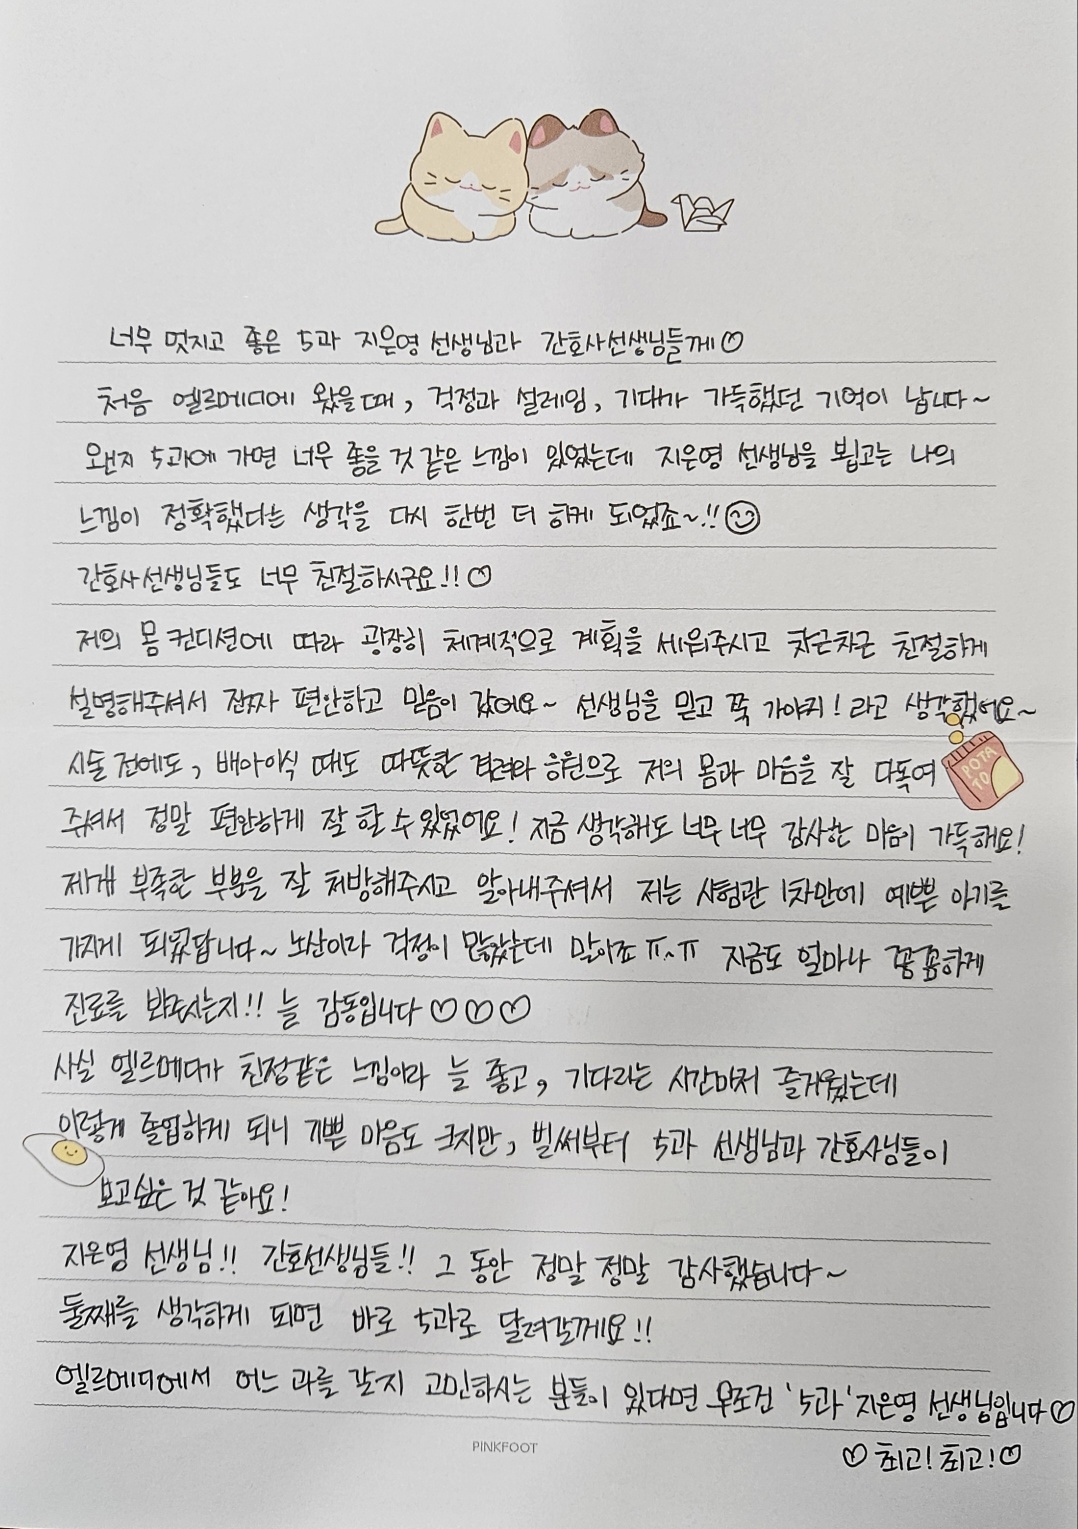 너무 멋지고 좋은 5과 지은영 선생님과 간호사선생님들께♡
처음 엘르메디에 왔을때, 걱정과 설레임, 기대가 가득했던 기억이 납니다~
왠지 5과에 가면 너무 좋을 것 같은 느낌이 있었는데 지은영 선생님을 뵙고는 나의
느낌이 정확했다는 생각을 다시 한번 더 하게 되었죠~!!
간호사선생님들도 너무 친절하시구요!!♡
저의 몸 컨디션에 따라 굉장히 체계적으로 계획을 세워주시고 차근차근 친절하게
설명해주셔서 진짜 편안하고 믿음이 갔어요~ 선생님을 믿고 쭉 가야지! 라고 생각했어요~
POTA
TO
시술 전에도, 배아이식 때도 따뜻한 격려와 응원으로 저의 몸과 마음을 잘 다독여
주셔서 정말 편안하게 잘 할 수 있었어요! 지금 생각해도 너무너무 감사한 마음이 가득해요!
제게 부족한 부분을 잘 처방해주시고 알아내주셔서 저는 시험관 1차만에 예쁜 아기를
가지게 되었답니다~ 노산이라 걱정이 많았는데 말이죠 ㅠ~ㅠ 지금도 얼마나 꼼꼼하게
진료를 봐주시는지!! 늘 감동입니다♡♡♡
사실 엘르메디가 친정같은 느낌이라 늘 좋고, 기다리는 시간마저 즐거웠는데
이렇게 졸업하게 되니 기쁜 마음도 크지만, 벌써부터 5과 선생님과 간호사님들이
보고싶은 것 같아요!
지은영 선생님!! 간호선생님들!! 그 동안 정말 정말 감사했습니다~
둘째를 생각하게 되면 바로 5과로 달려갈께요!!
엘르메디에서 어느 과를 갈지 고민하시는 분들이 있다면 무조건 '5과' 지은영 선생님입니다♡
♡최고! 최고!♡
PINKFOOT